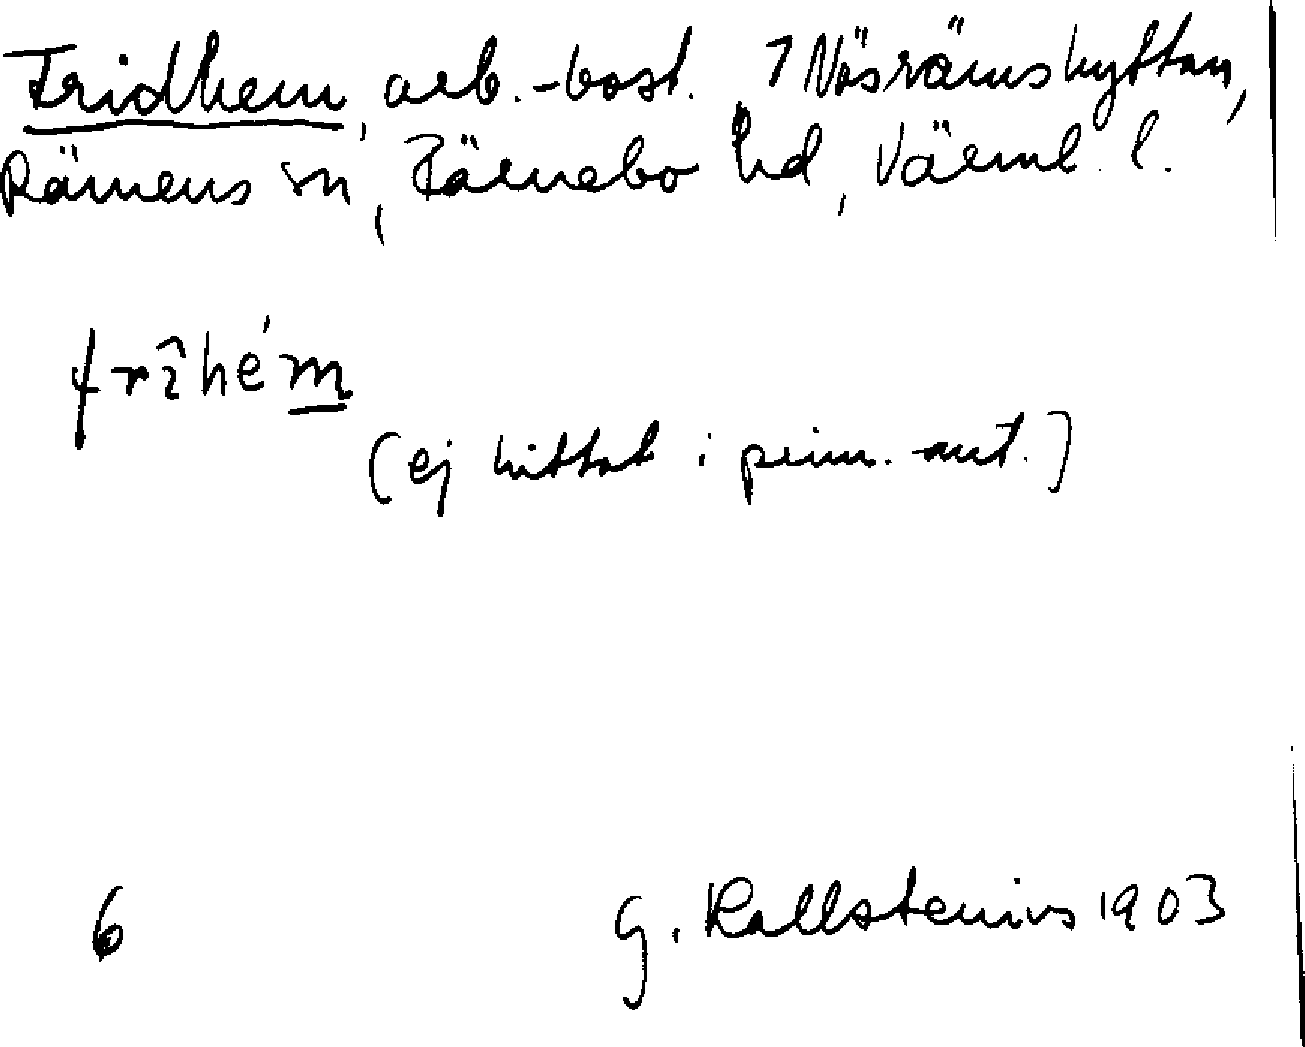 Fridhem, arb.-bost. 7 Näsrämshyttan,
Rämens sn, Färnebo hd, Värml. l.
frîhém
(ej hittat i prim. ant.)
6 G. Kallstenius 1903